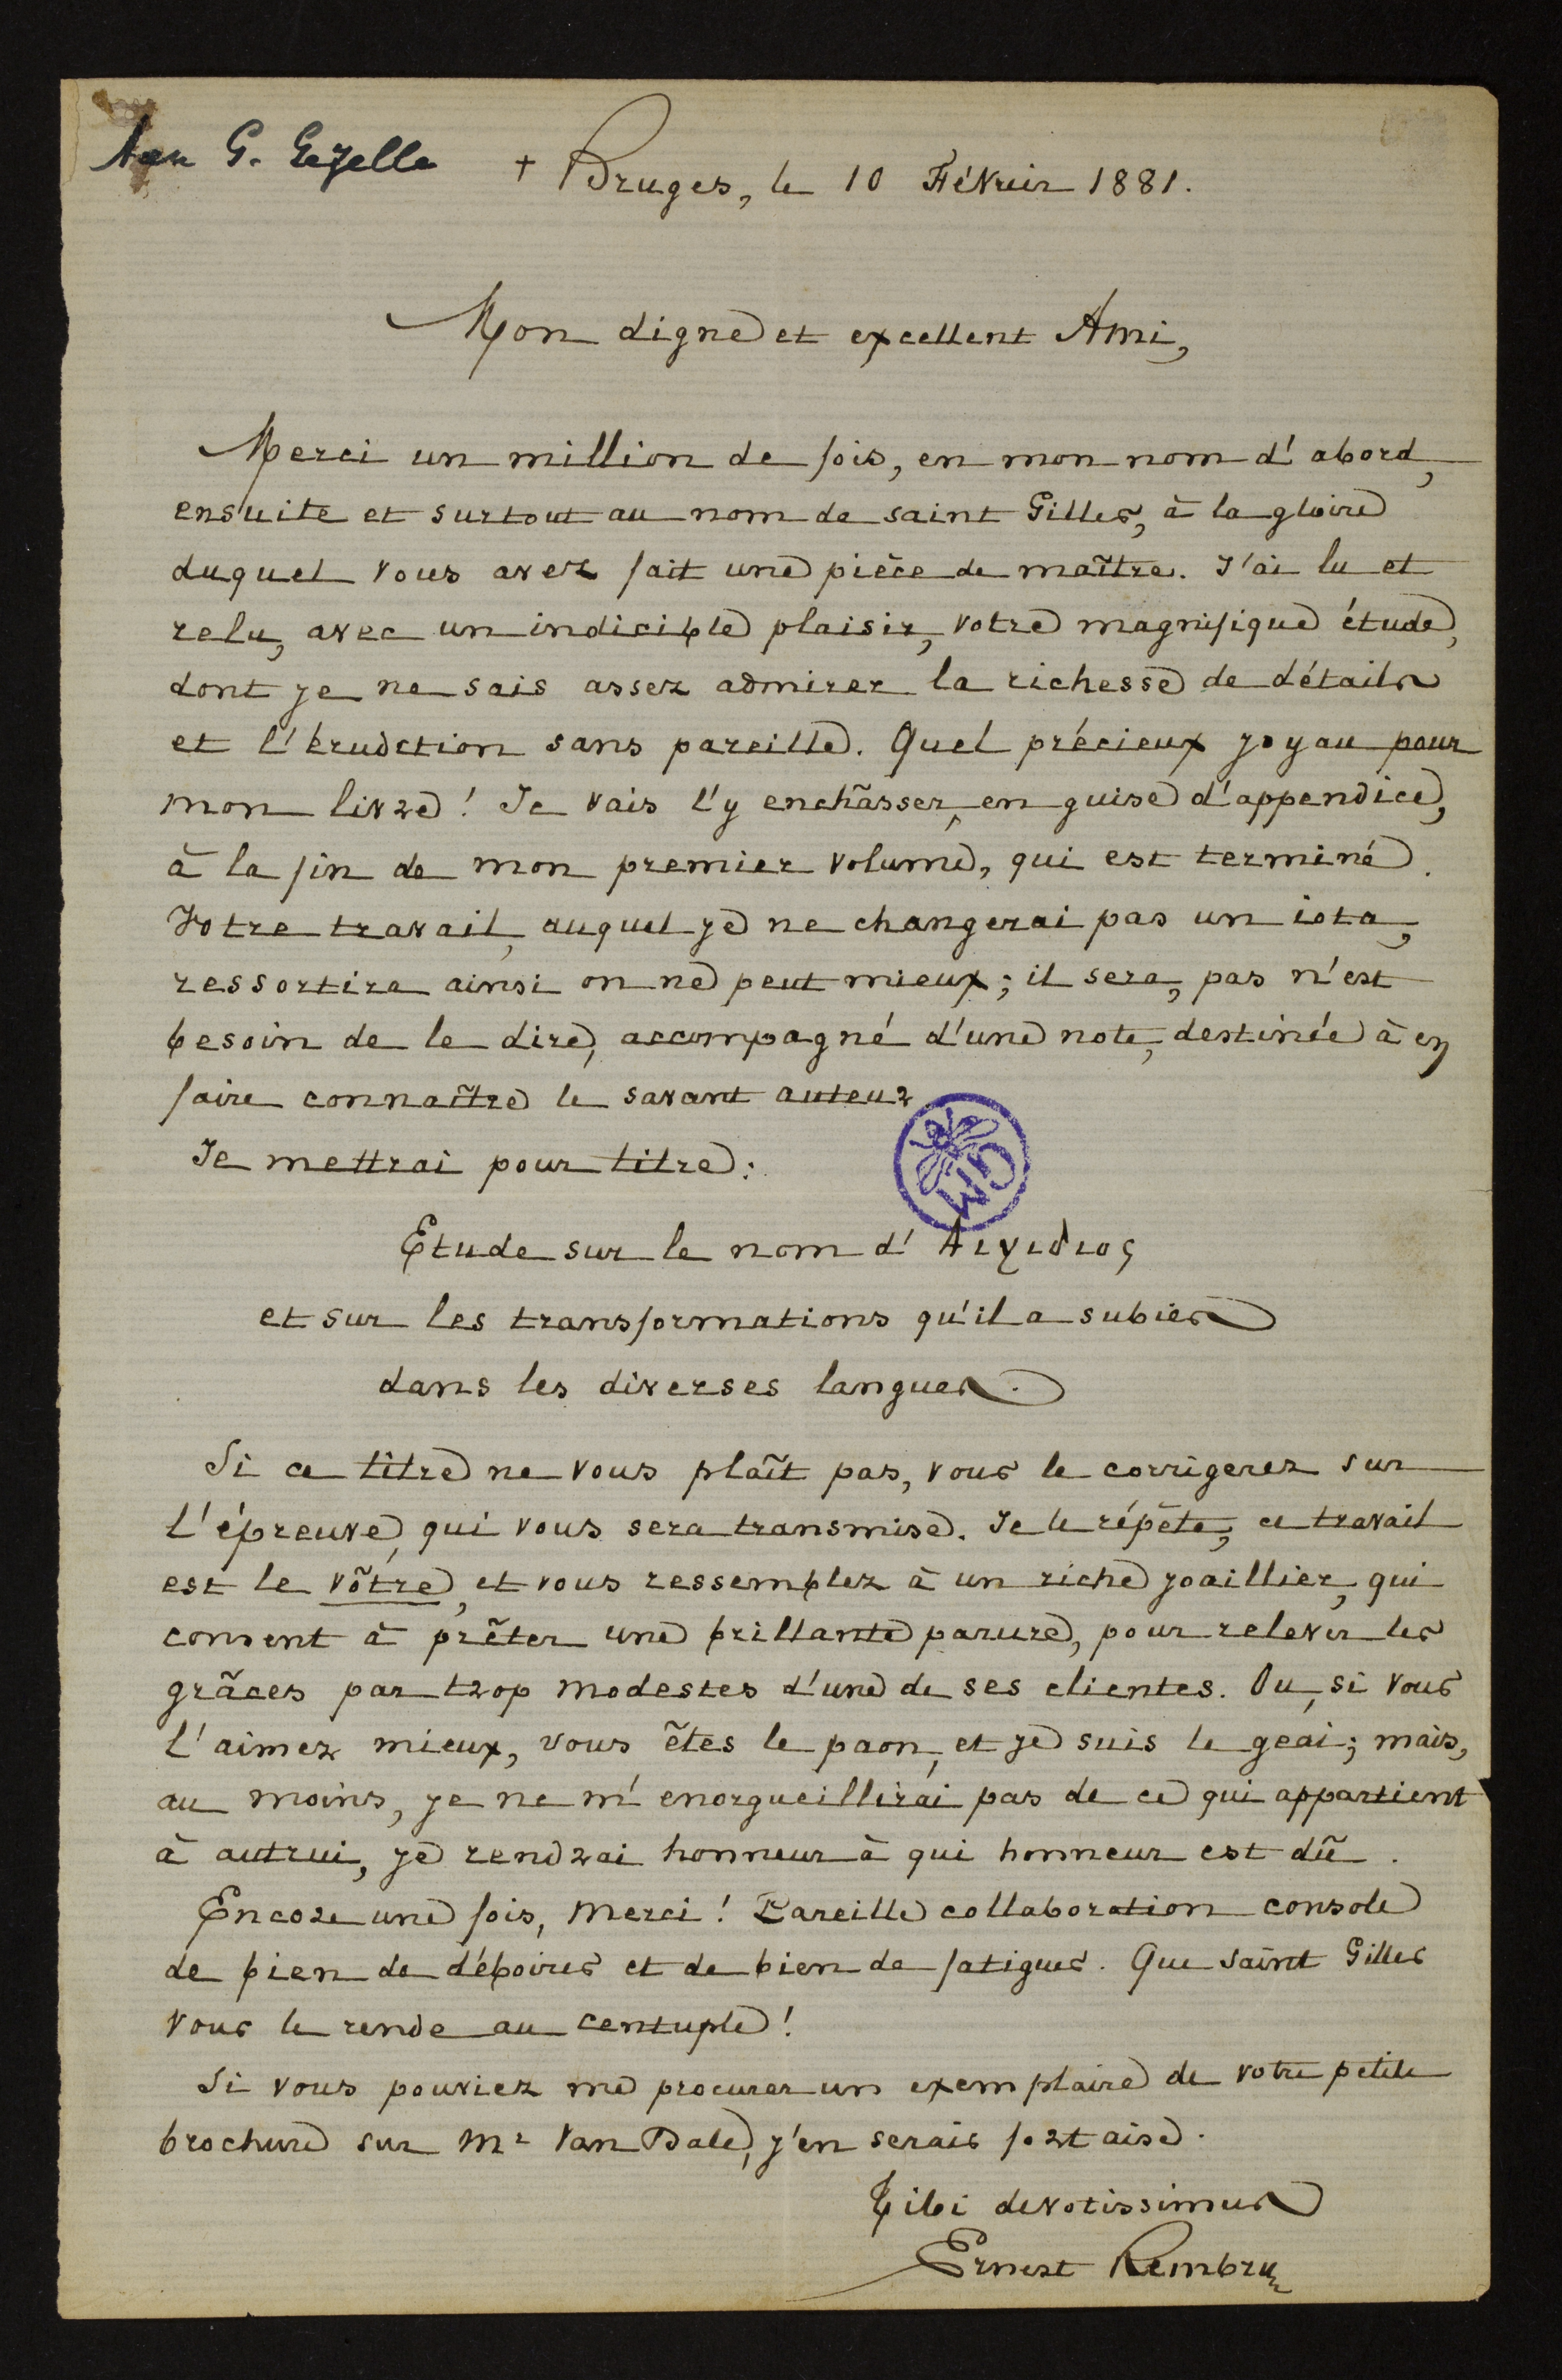 Aan G. Gezelle
+ Bruges, le 10 Février 1881.
Mon digne et excellent Ami,
Merci un million de fois, en mon nom d'abord,
ensuite et surtout au nom de saint Gilles, à la gloire
duquel vous avez fait une pièce de maître. J'ai lu et
relu, avec un indicible plaisir, votre magnifique étude,
dont je ne sais assez admirer la richesse de détails
et l'érudition sans pareille. Quel précieux joyau pour
mon livre! Je vais l'y enchâsser, en guise d'appendice,
à la fin de mon premier volume, qui est terminé.
Votre travail, auquel je ne changerai pas un iota,
ressortira ainsi on ne peut mieux; il sera, pas n'est
besoin de le dire, accompagné d'une note, destinée à en
faire connaître le savant auteur
Je mettrai pour titre:
GM
Etude sur le nom d'Αιγιδιος
et sur les transformations qu'il a subies
dans les diverses langues.
Si ce titre ne vous plaît pas, vous le corrigerez sur
l'épreuve, qui vous sera transmise. Je le répète, ce travail
est le vôtre, et vous ressemblez à un riche joaillier, qui
consent à prêter une brillante parure, pour relever les
grâces par trop modestes d'une de ses clientes. Ou, si vous
l'aimez mieux, vous êtes le paon, et je suis le geai; mais,
au moins, je ne m'enorgueillirai pas de ce qui appartient
à autrui, je rendrai honneur à qui honneur est dû.
Encore une fois, merci! Pareille collaboration console
de bien de déboires et de bien de fatigues. Que saint Gilles
vous le rende au centuple!
Si vous pouviez me procurer un exemplaire de votre petite
brochure sur Mr Van Dale, j'en serais fort aise.
Tibi devotissimus
Ernest Rembry